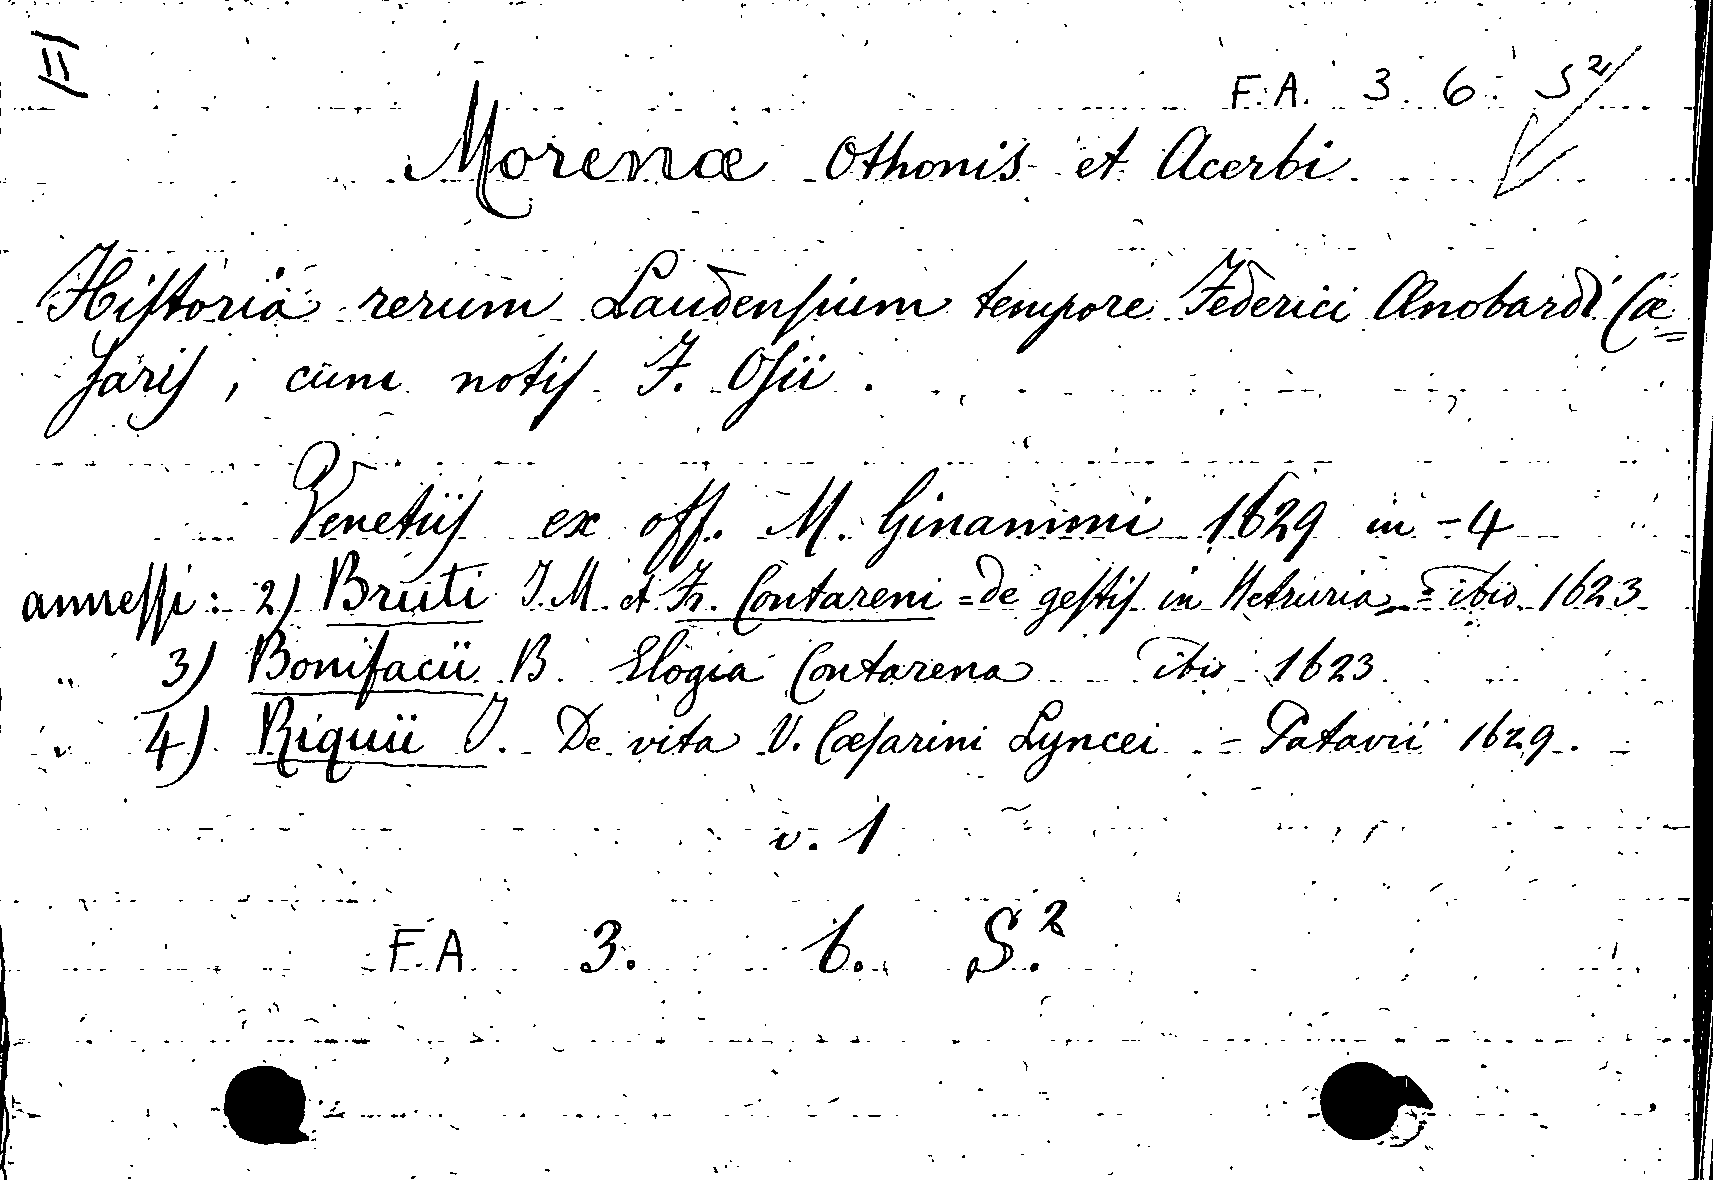 II
F. A. 3. 6. S²
Morenæ Othonis et Acerbi
Hiſtoria rerum Laudenſium tempore Federici Ænobardi Cæ=
ſaris, cum notis F. Oſii.
Venetiis ex off. M. Ginammi 1629 in-4
anneſſi: 2) Bruti J. M. et Fr. Contareni = de geſtis in Hetruria = ibid. 1623
" 3) Bonifacii B. Elogia Contarena ibid 1623
" 4) Riquii J. De vita V. Cæſarini Lyncei - Patavii 1629. -
v. 1
F. A 3. 6. S.²